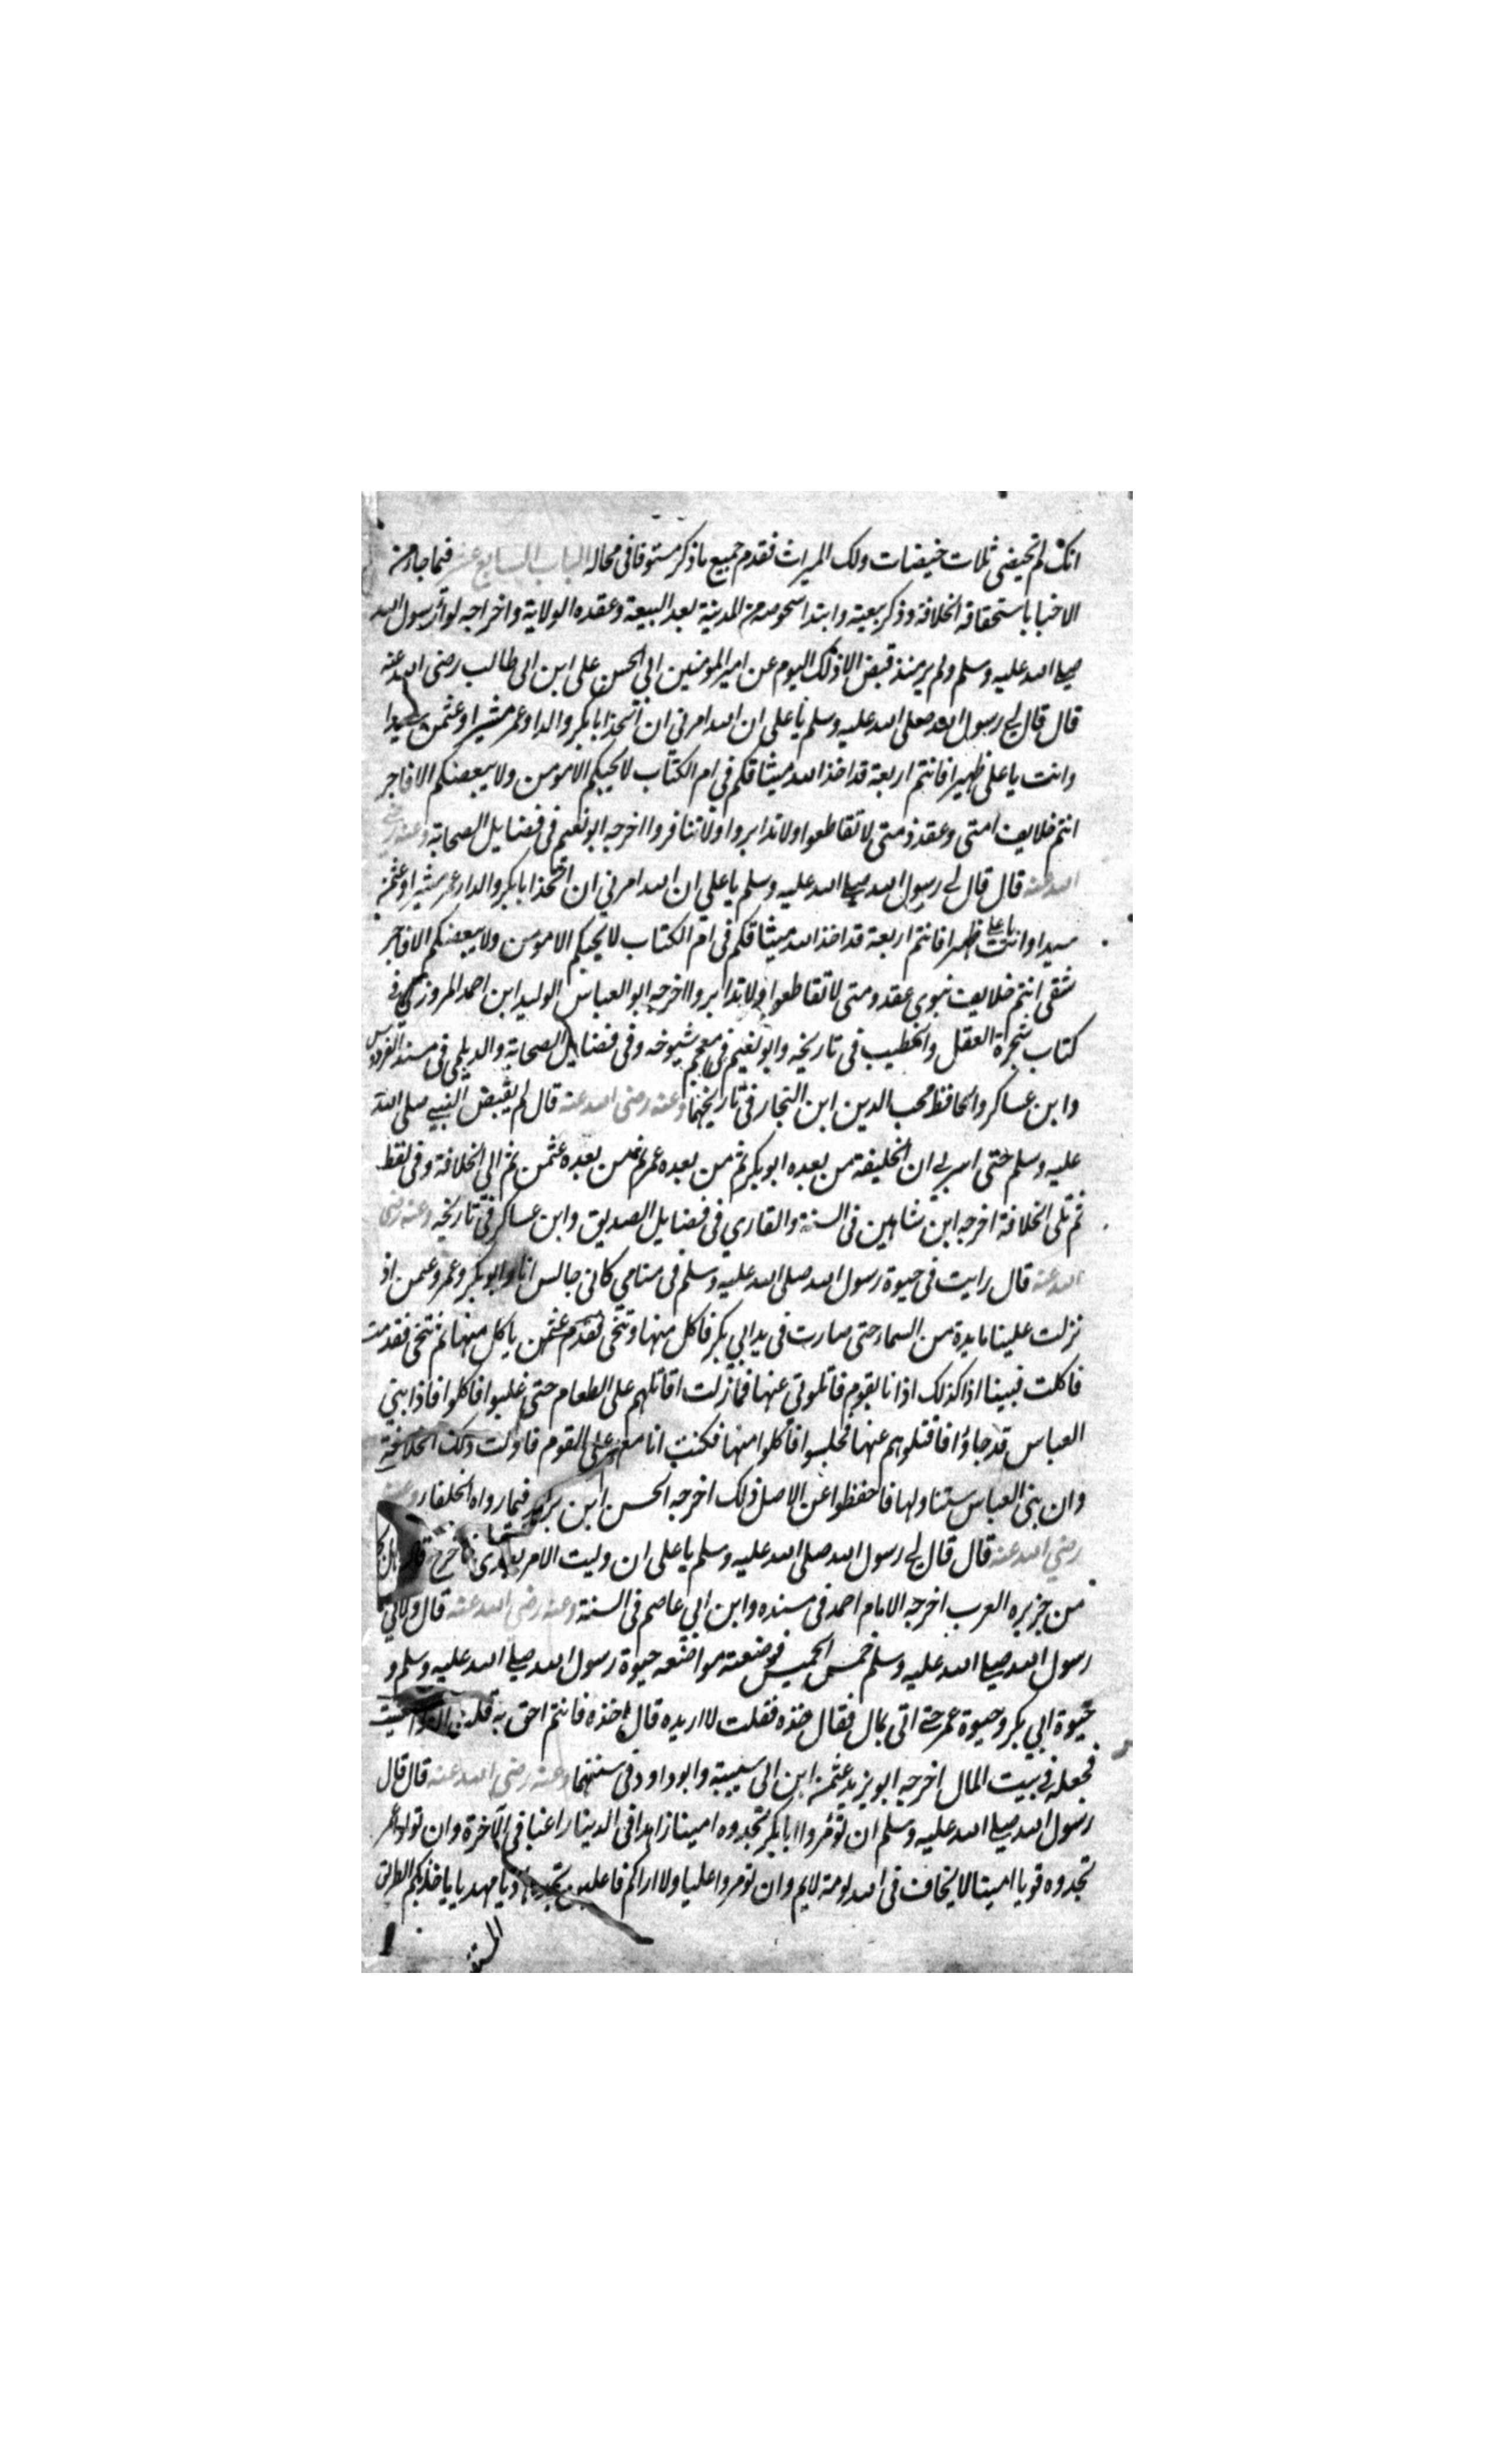 انك لم تحيضي ثلاث حيضات ولك الميراث فقدم جميع ماذكر مستوفا في محاله الباب السابع عشر فيما جاء من
الاخبار باستحقاقه الخلافة وذكر بيعته وابتدا من المدينة بعد البيعة وعقده الولاية واخراجه لواء رسول الله
صلى الله عليه وسلم ولم ير منذ قبض الا ذلك اليوم عن امير المومنين ابي الحسن على ابن ابى طالب رضى الله عنه
قال قال لي رسول الله صلى الله عليه وسلم يا على ان الله امرني ان اتخذ ابا بكر والدا وعمر مشيرا وعثمن سيدا
وانت يا على ظهيرا فانتم اربعة قد اخذ الله ميثاقكم في ام الكتاب لا يحبكم الا مومن ولا يبغضكم الا فاجر
انتم خلايف امتى وعقد ذمتى لا تقاطعوا ولا تدابروا ولا تنافروا اخرجه ابو نعيم فى فضايل الصحابة وعنه رضى
الله عنه قال قال لي رسول الله صلى الله عليه وسلم يا على ان الله امرني ان اتخذ ابا بكر والدا وعمر مشيرا وعثمن
سيدا وانت يا على ظهيرا فانتم اربعة قد اخذ الله ميثاقكم فى ام الكتاب لا يحبكم الا مومن ولا يبغضكم الا فاجر
شقى انتم خلايف نبوى عقد ومتى لا تقاطعوا ولا تدابروا اخرجه ابو العباس الوليد ابن احمد المروزى فى
كتاب شجرة العقل والخطيب فى تاريخه وابو نعيم فى معجم شيوخه وفى فضايل الصحابة والديلمى فى مسند الفردوس
وابن عساكر والحافظ محب الدين ابن النجار فى تاريخهما وعنه رضى الله عنه قال لم يقبض النبي صلى الله
عليه وسلم حتى اسر لي ان الخليفة من بعده ابو بكر ثم من بعده عمر ثم من بعده عثمن ثم الى الخلافة وفى لفظ
ثم تلى الخلافة اخرجه ابن شاهين فى السنة والقاري فى فضايل الصديق وابن عساكر فى تاريخه وعنه رضى
الله عنه قال رايت فى حيوة رسول الله صلى الله عليه وسلم فى منامي كانى جالس انا وابو بكر وعمر وعثمن اذ
نزلت علينا مايدة من السماء حتى صارت فى يد ابي بكر فاكل منها وتنحى تقدم عثمن ياكل منها ثم تنحى فقدمت
فاكلت فبينا اذا كذلك اذ انا بقوم قاتلوني عنها فما زلت اقاتلهم على الطعام حتى غلبوا فاكلوا فاذا بني
العباس قد جاؤا فاقتلوهم عنها فجلسوا فاكلوا منها فكنت انا معهم على القوم فاولت ذلك الخلافة
وان بنى العباس ستناولها فاحفظوا عن الاصل ذلك اخرجه الحسن ابن فيما رواه الخلفاء وعنه
رضي الله عنه قال قال لي رسول الله صلى الله عليه وسلم يا على ان وليت الامر بعدى فاخرج
من جزيره العرب اخرجه الامام احمد فى مسنده وابن ابي عاصم فى السنة وعنه رضى الله عنه قال ولاني
رسول الله صلى الله عليه وسلم خمس الخميس فوضعته مواضعه حيوة رسول الله صلى الله عليه وسلم و
حيوة ابي بكر وحيوة عمر حتى اتى بمال فقال خذه فقلت لا اريده قال خذه فانتم احق به قلت
فجعله فى بيت المال اخرجه ابو يزيد عثمن ابن ابى شيبة وابو داود فى سننهما وعنه رضى الله عنه قال قال
رسول الله صلى الله عليه وسلم ان تومروا ابا بكر تجدوه امينا زاهدا فى الدينا راغبا فى الآخرة وان تومروا عمر
تجدوه قويا امينا لا يخاف فى الله لومة لايم وان تومروا عليا ولا اراكم فاعلين تجدوه هاديا مهديا ياخذ بكم الطريق